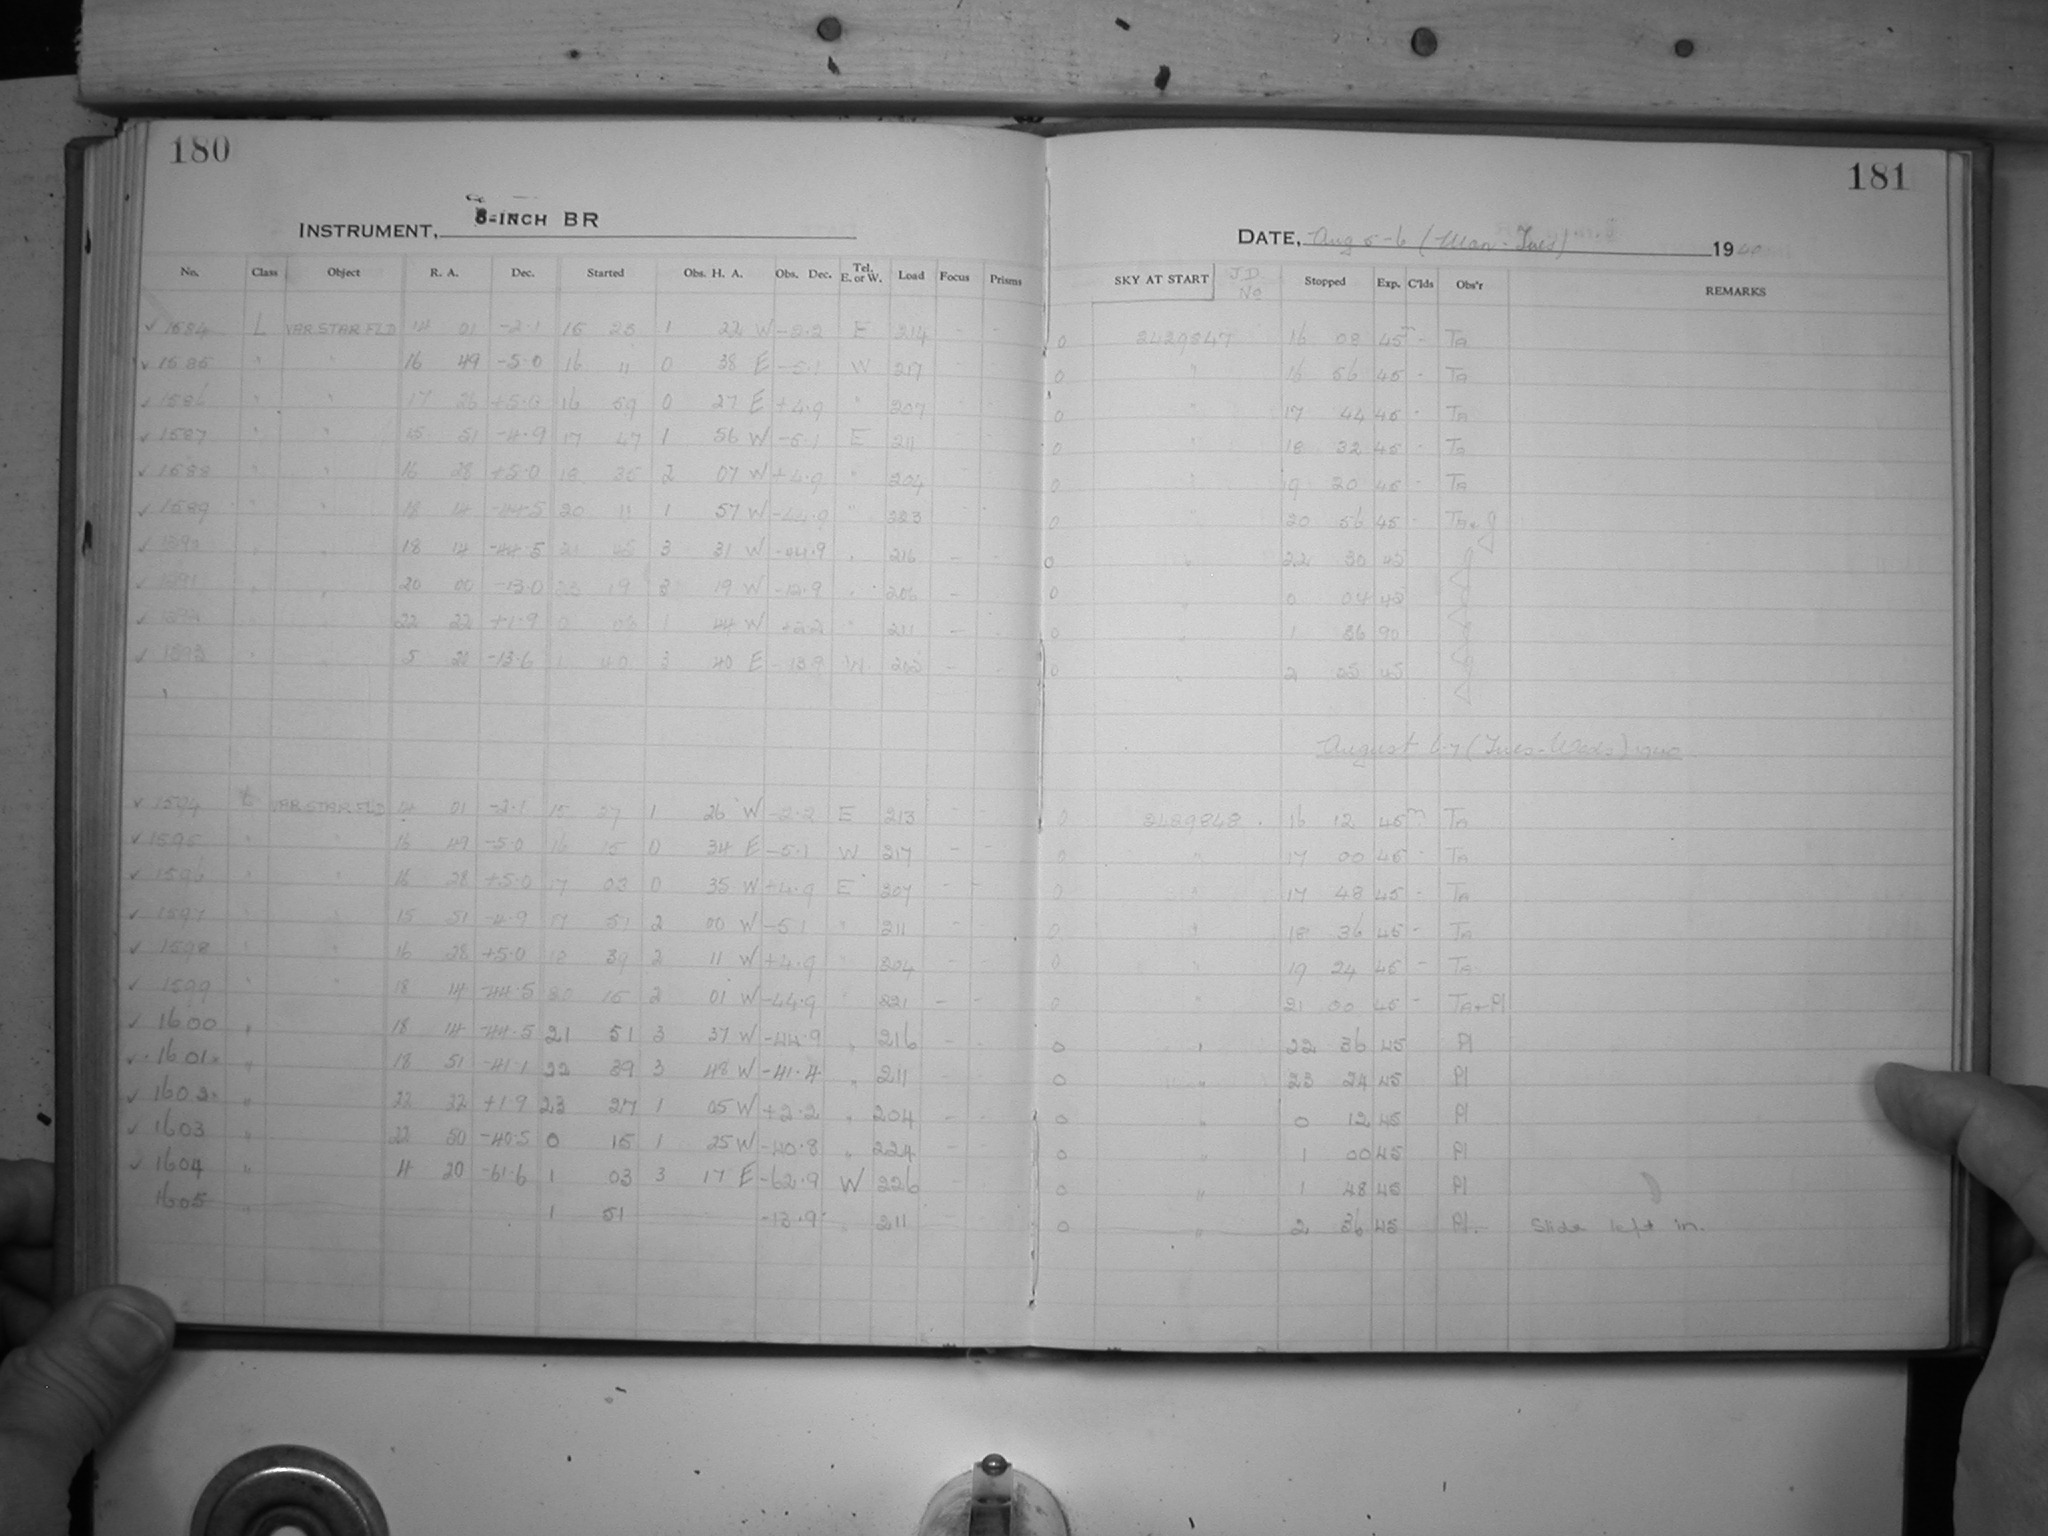 180
181
INSTRUMENT, 8-INCH BR
DATE, Aug 5-6 (Mon-Tues) 1940
No. Class Object R. A. Dec. Started Obs. H. A. Obs. Dec. Tel. E. or W. Load Focus Prisms SKY AT START JD No Stopped Exp. C'lds Obs'r REMARKS
1584 L VAR STAR FLD 14 01 -2.1 15 23 1 22 W -2.2 E 214 - - 0 2429847 16 08 45 - TA
1585 " " 16 49 -5.0 16 11 0 38 E -5.1 W 217 0 " 16 56 45 - TA
1586 " " 17 26 +5.0 16 59 0 27 E +4.9 " 207 0 " 17 44 45 - TA
1587 " " 15 51 -4.9 17 47 1 56 W -5.1 E 211 0 " 18 32 45 - TA
1588 " " 16 28 +5.0 18 35 2 07 W +4.9 " 204 0 " 19 20 45 - TA
1589 " " 18 14 -44.5 20 11 1 57 W -44.9 " 223 0 " 20 56 45 - TA + J
1590 " " 18 14 -44.5 21 45 3 31 W -44.9 " 216 - 0 " 22 30 45
1591 " " 20 00 -13.0 23 19 3 19 W -12.9 " 206 - 0 " 0 04 45
1592 " " 22 22 +1.9 0 06 1 44 W +2.2 " 211 - 0 " 1 36 90
1593 " " 5 20 -13.6 1 40 3 40 E -13.9 W 202 - 0 " 2 25 45
August 6-7 (Tues-Weds) 1940
1594 L VAR STAR FLD 14 01 -2.1 15 27 1 26 W -2.2 E 213 0 2429848 16 12 45m TA
1595 " " 16 49 -5.0 16 15 0 34 E -5.1 W 217 - - 0 " 17 00 45 - TA
1596 " " 16 28 +5.0 17 03 0 35 W +4.9 E 207 - - 0 " 17 48 45 - TA
1597 " " 15 51 -4.9 17 51 2 00 W -5.1 " 211 - - 0 " 18 36 45 - TA
1598 " " 16 28 +5.0 18 39 2 11 W +4.9 " 204 - - 0 " 19 24 45 - TA
1599 " " 18 14 -44.5 20 15 2 01 W -44.9 " 221 - - 0 " 21 00 45 - TA + Pl
1600 " 18 14 -44.5 21 51 3 37 W -44.9 " 216 - - 0 " 22 36 45 Pl
1601 " 18 51 -41.1 22 39 3 48 W -41.4 " 211 0 " 23 24 45 Pl
1602 " 22 22 +1.9 23 27 1 05 W +2.2 " 204 - - 0 " 0 12 45 Pl
1603 " 22 50 -40.5 0 15 1 25 W -40.8 " 224 - - 0 " 1 00 45 Pl
1604 " 4 20 -61.6 1 03 3 17 E -62.9 W 226 - 0 " 1 48 45 Pl
1605 " 1 51 -13.9 " 211 0 " 2 36 45 Pl. Slide left in.